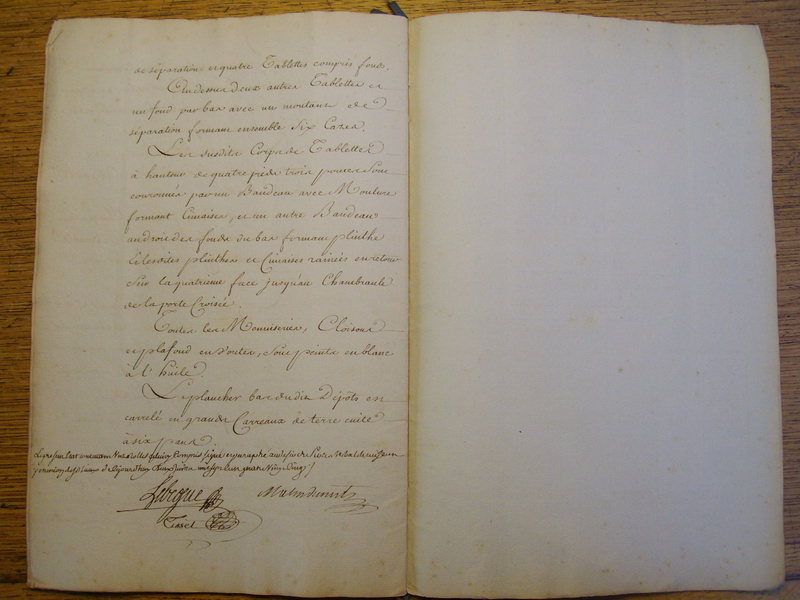 de séparation et quatre Tablettes compris fonds.
Au dessus deux autres Tablettes et
un fond par bas avec un montant de
séparation formant ensemble Six Cases.
Les susdits Corps de Tablettes
à hauteur de quatre pieds trois pouces sont
couronnés par un Bandeau avec Moulure
formant Cimaises, et un autre Bandeau
au droit des fonds du bas formant plinthe
Lesdites plinthes et Cimaises rainées en retour
sur la quatrieme face jusqu'au Chambranle
de la porte Croisée.
Toutes les Menuiseries, Cloisons
et plafond en Voutes, sont peints en blanc
à l'huile.
Le plancher bas dudit Dépôts est
carrelé en grands Carreaux de terre cuite
à six pans.
Le présent Etat contenant
Lebegue
Tisset